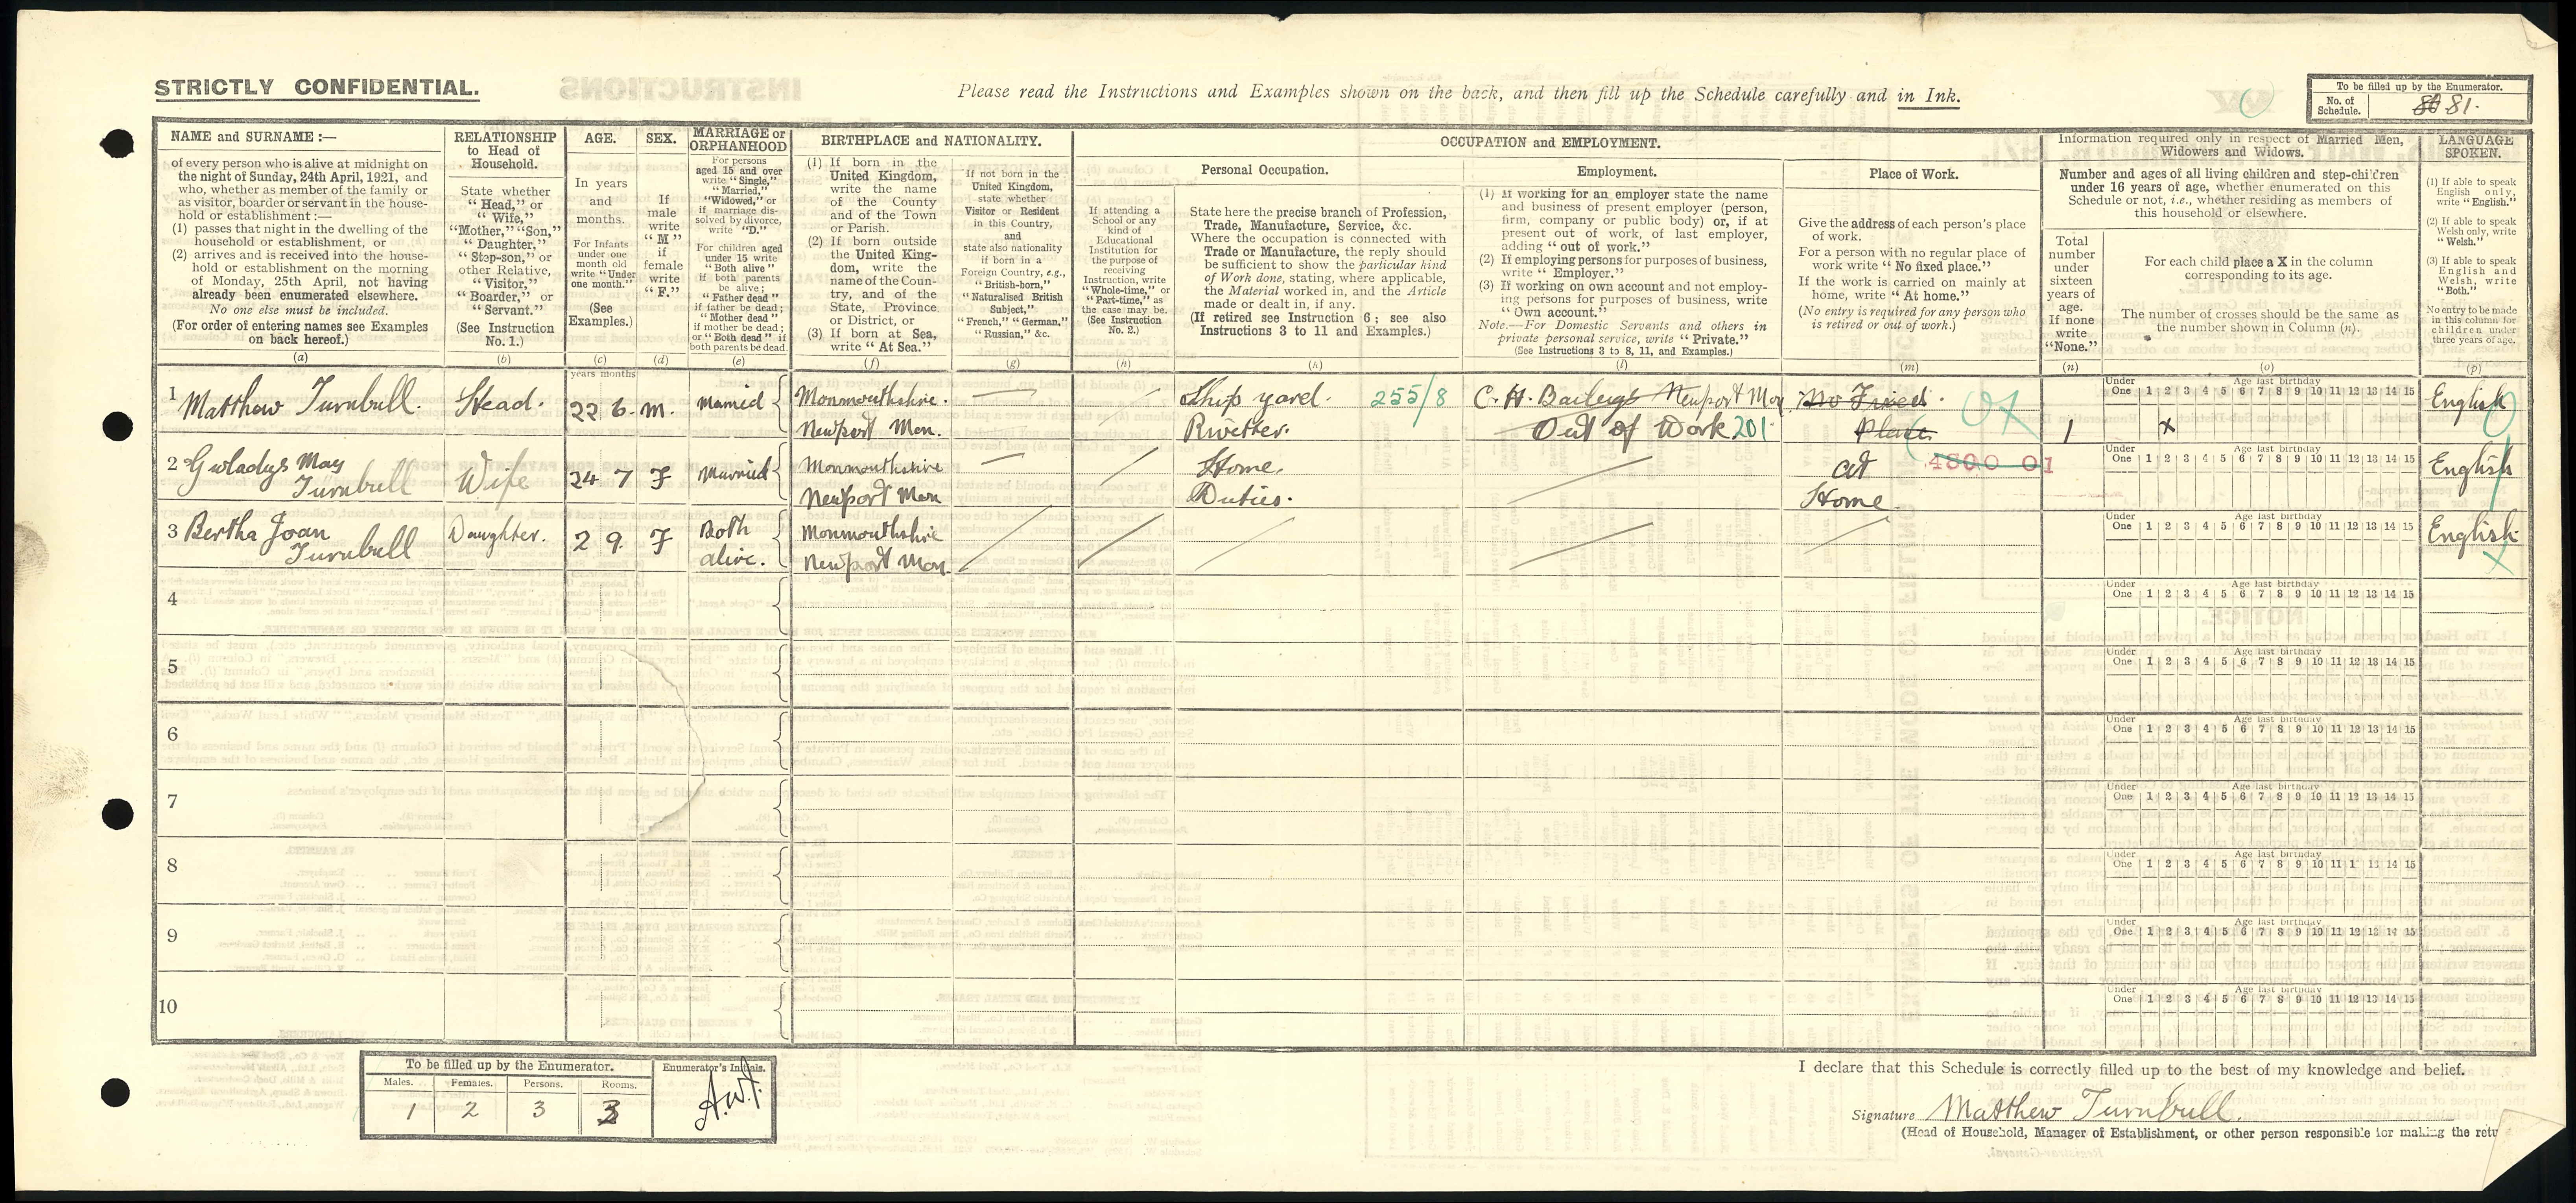 STRICTLY CONFIDENTIAL.
Please read the Instructions and Examples shown on the back, and then fill up the Schedule carefully and in Ink.
To be filled up by the Enumerator.
No. of Schedule. 81.
NAME and SURNAME :—
of every person who is alive at midnight on
the night of Sunday, 24th April, 1921, and
who, whether as member of the family or
as visitor, boarder or servant in the house-
hold or establishment :—
(1) passes that night in the dwelling of the
household or establishment, or
(2) arrives and is received into the house-
hold or establishment on the morning
of Monday, 25th April, not having
already been enumerated elsewhere.
No one else must be included.
(For order of entering names see Examples
on back hereof.)
(a)
RELATIONSHIP
to Head of
Household.
State whether
"Head," or
"Wife,"
"Mother," "Son,"
"Daughter,"
"Step-son," or
other Relative,
"Visitor,"
"Boarder," or
"Servant."
(See Instruction
No. 1.)
(b)
AGE.
In years
and
months.
For Infants
under one
month old
write "Under
one month."
(See
Examples.)
(c)
SEX.
If
male
write
"M"
if
female
write
"F."
(d)
MARRIAGE or
ORPHANHOOD
For persons
aged 15 and over
write "Single,"
"Married,"
"Widowed," or
if marriage dis-
solved by divorce,
write "D."
For children aged
under 15 write
"Both alive"
if both parents
be alive;
"Father dead"
if father be dead;
"Mother dead"
if mother be dead;
or "Both dead" if
both parents be dead.
(e)
BIRTHPLACE and NATIONALITY.
(1) If born in the
United Kingdom,
write the name
of the County
and of the Town
or Parish.
(2) If born outside
the United King-
dom, write the
name of the Coun-
try, and of the
State, Province
or District, or
(3) If born at Sea,
write "At Sea."
(f)
If not born in the
United Kingdom,
state whether
Visitor or Resident
in this Country,
and
state also nationality
if born in a
Foreign Country, e.g.,
"British-born,"
"Naturalised British
Subject,"
"French," "German,"
"Russian," &c.
(g)
OCCUPATION and EMPLOYMENT.
If attending a
School or any
kind of
Educational
Institution for
the purpose of
receiving
Instruction, write
"Whole-time," or
"Part-time," as
the case may be.
(See Instruction
No. 2.)
(h)
Personal Occupation.
State here the precise branch of Profession,
Trade, Manufacture, Service, &c.
Where the occupation is connected with
Trade or Manufacture, the reply should
be sufficient to show the particular kind
of Work done, stating, where applicable,
the Material worked in, and the Article
made or dealt in, if any.
(If retired see Instruction 6; see also
Instructions 3 to 11 and Examples.)
(k)
Employment.
(1) If working for an employer state the name
and business of present employer (person,
firm, company or public body) or, if at
present out of work, of last employer,
adding "out of work."
(2) If employing persons for purposes of business,
write "Employer."
(3) If working on own account and not employ-
ing persons for purposes of business, write
"Own account."
Note.—For Domestic Servants and others in
private personal service, write "Private."
(See Instructions 3 to 8, 11, and Examples.)
(l)
Place of Work.
Give the address of each person's place
of work.
For a person with no regular place of
work write "No fixed place."
If the work is carried on mainly at
home, write "At home."
(No entry is required for any person who
is retired or out of work.)
(m)
Information required only in respect of Married Men,
Widowers and Widows.
Number and ages of all living children and step-children
under 16 years of age, whether enumerated on this
Schedule or not, i.e., whether residing as members of
this household or elsewhere.
Total
number
under
sixteen
years of
age.
If none
write
"None."
(n)
For each child place a X in the column
corresponding to its age.
The number of crosses should be the same as
the number shown in Column (n).
(o)
LANGUAGE
SPOKEN.
(1) If able to speak
English only,
write "English."
(2) If able to speak
Welsh only, write
"Welsh."
(3) If able to speak
English and
Welsh, write
"Both."
No entry to be made
in this column for
children under
three years of age.
(p)
years months
1 Matthew Turnbull. Head. 22 6. M. Married Monmouthshire. Newport Mon. — Ship yard. 255/8 Rivetter. C. H. Baileys Newport Mon. Out of Work 201 No Fixed Place 1 X English
2 Gwladys May Turnbull Wife 24 7 F Married Monmouthshire Newport Mon — Home Duties. at Home 4800 01 English
3 Bertha Joan Turnbull Daughter. 2 9. F Both alive. Monmouthshire Newport Mon. English
4
5
6
7
8
9
10
Under One Age last birthday 1 2 3 4 5 6 7 8 9 10 11 12 13 14 15
Under One Age last birthday 1 2 3 4 5 6 7 8 9 10 11 12 13 14 15
Under One Age last birthday 1 2 3 4 5 6 7 8 9 10 11 12 13 14 15
Under One Age last birthday 1 2 3 4 5 6 7 8 9 10 11 12 13 14 15
Under One Age last birthday 1 2 3 4 5 6 7 8 9 10 11 12 13 14 15
Under One Age last birthday 1 2 3 4 5 6 7 8 9 10 11 12 13 14 15
Under One Age last birthday 1 2 3 4 5 6 7 8 9 10 11 12 13 14 15
Under One Age last birthday 1 2 3 4 5 6 7 8 9 10 11 1 13 14 15
Under One Age last birthday 1 2 3 4 5 6 7 8 9 10 11 12 13 14 15
Under One Age last birthday 1 2 3 4 5 6 7 8 9 10 11 12 13 14 15
To be filled up by the Enumerator.
Males. Females. Persons. Rooms.
1 2 3 3
Enumerator's Initials.
I declare that this Schedule is correctly filled up to the best of my knowledge and belief.
Signature Matthew Turnbull.
(Head of Household, Manager of Establishment, or other person responsible for making the retu